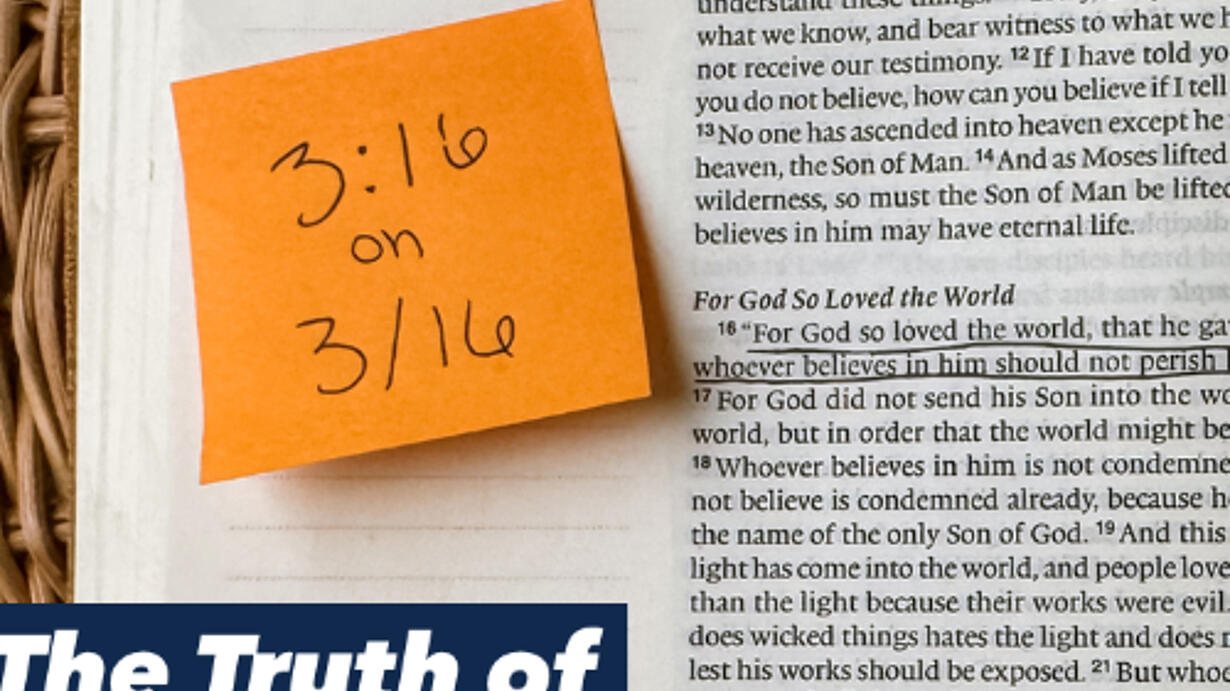 3:16
on
3/16
understand these things?
what we know, and bear witness to what we
not receive our testimony. 12 If I have told yo
you do not believe, how can you believe if I tell
13 No one has ascended into heaven except he
heaven, the Son of Man. 14 And as Moses lifted
wilderness, so must the Son of Man be lifte
believes in him may have eternal life.
For God So Loved the World
16 “For God so loved the world, that he ga
whoever believes in him should not perish
17 For God did not send his Son into the wo
world, but in order that the world might be
18 Whoever believes in him is not condemne
not believe is condemned already, because h
the name of the only Son of God. 19 And this
light has come into the world, and people love
than the light because their works were evil.
does wicked things hates the light and does
lest his works should be exposed. 21 But who
The Truth of